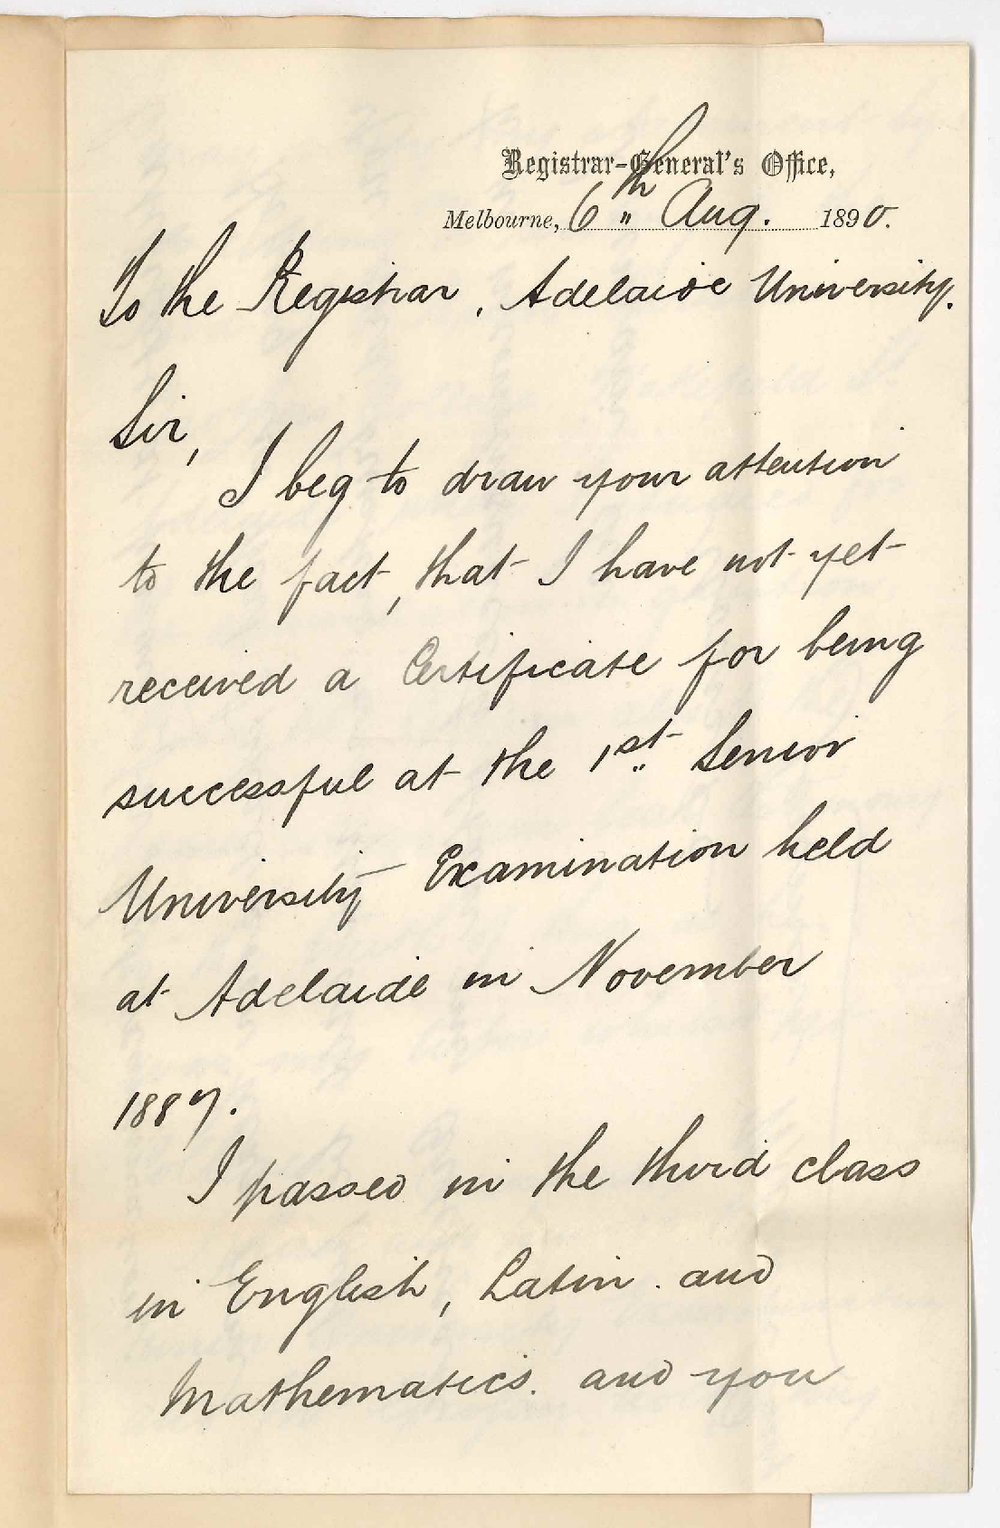 Registrar-General's Office,
Melbourne, 6th Aug. 1890.
To the Registrar, Adelaide University.
Sir,
I beg to draw your attention
to the fact, that I have not yet
received a Certificate for being
successful at the 1st Senior
University Examination held
at Adelaide in November
1887.
I passed in the third class
in English, Latin. and
Mathematics. and you